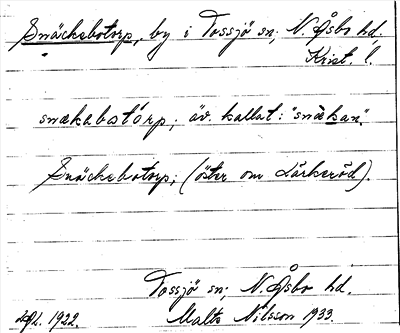 Snäckebotorp, by i Tossjö sn; N. Åsbo hd.
Krist. l.
snækabotårp; äv. kallat: "snækan".
Snäckebotorp; (öster om Lärkeröd).
Tossjö sn; N. Åsbo hd.
1922. Malte Nilsson 1933.